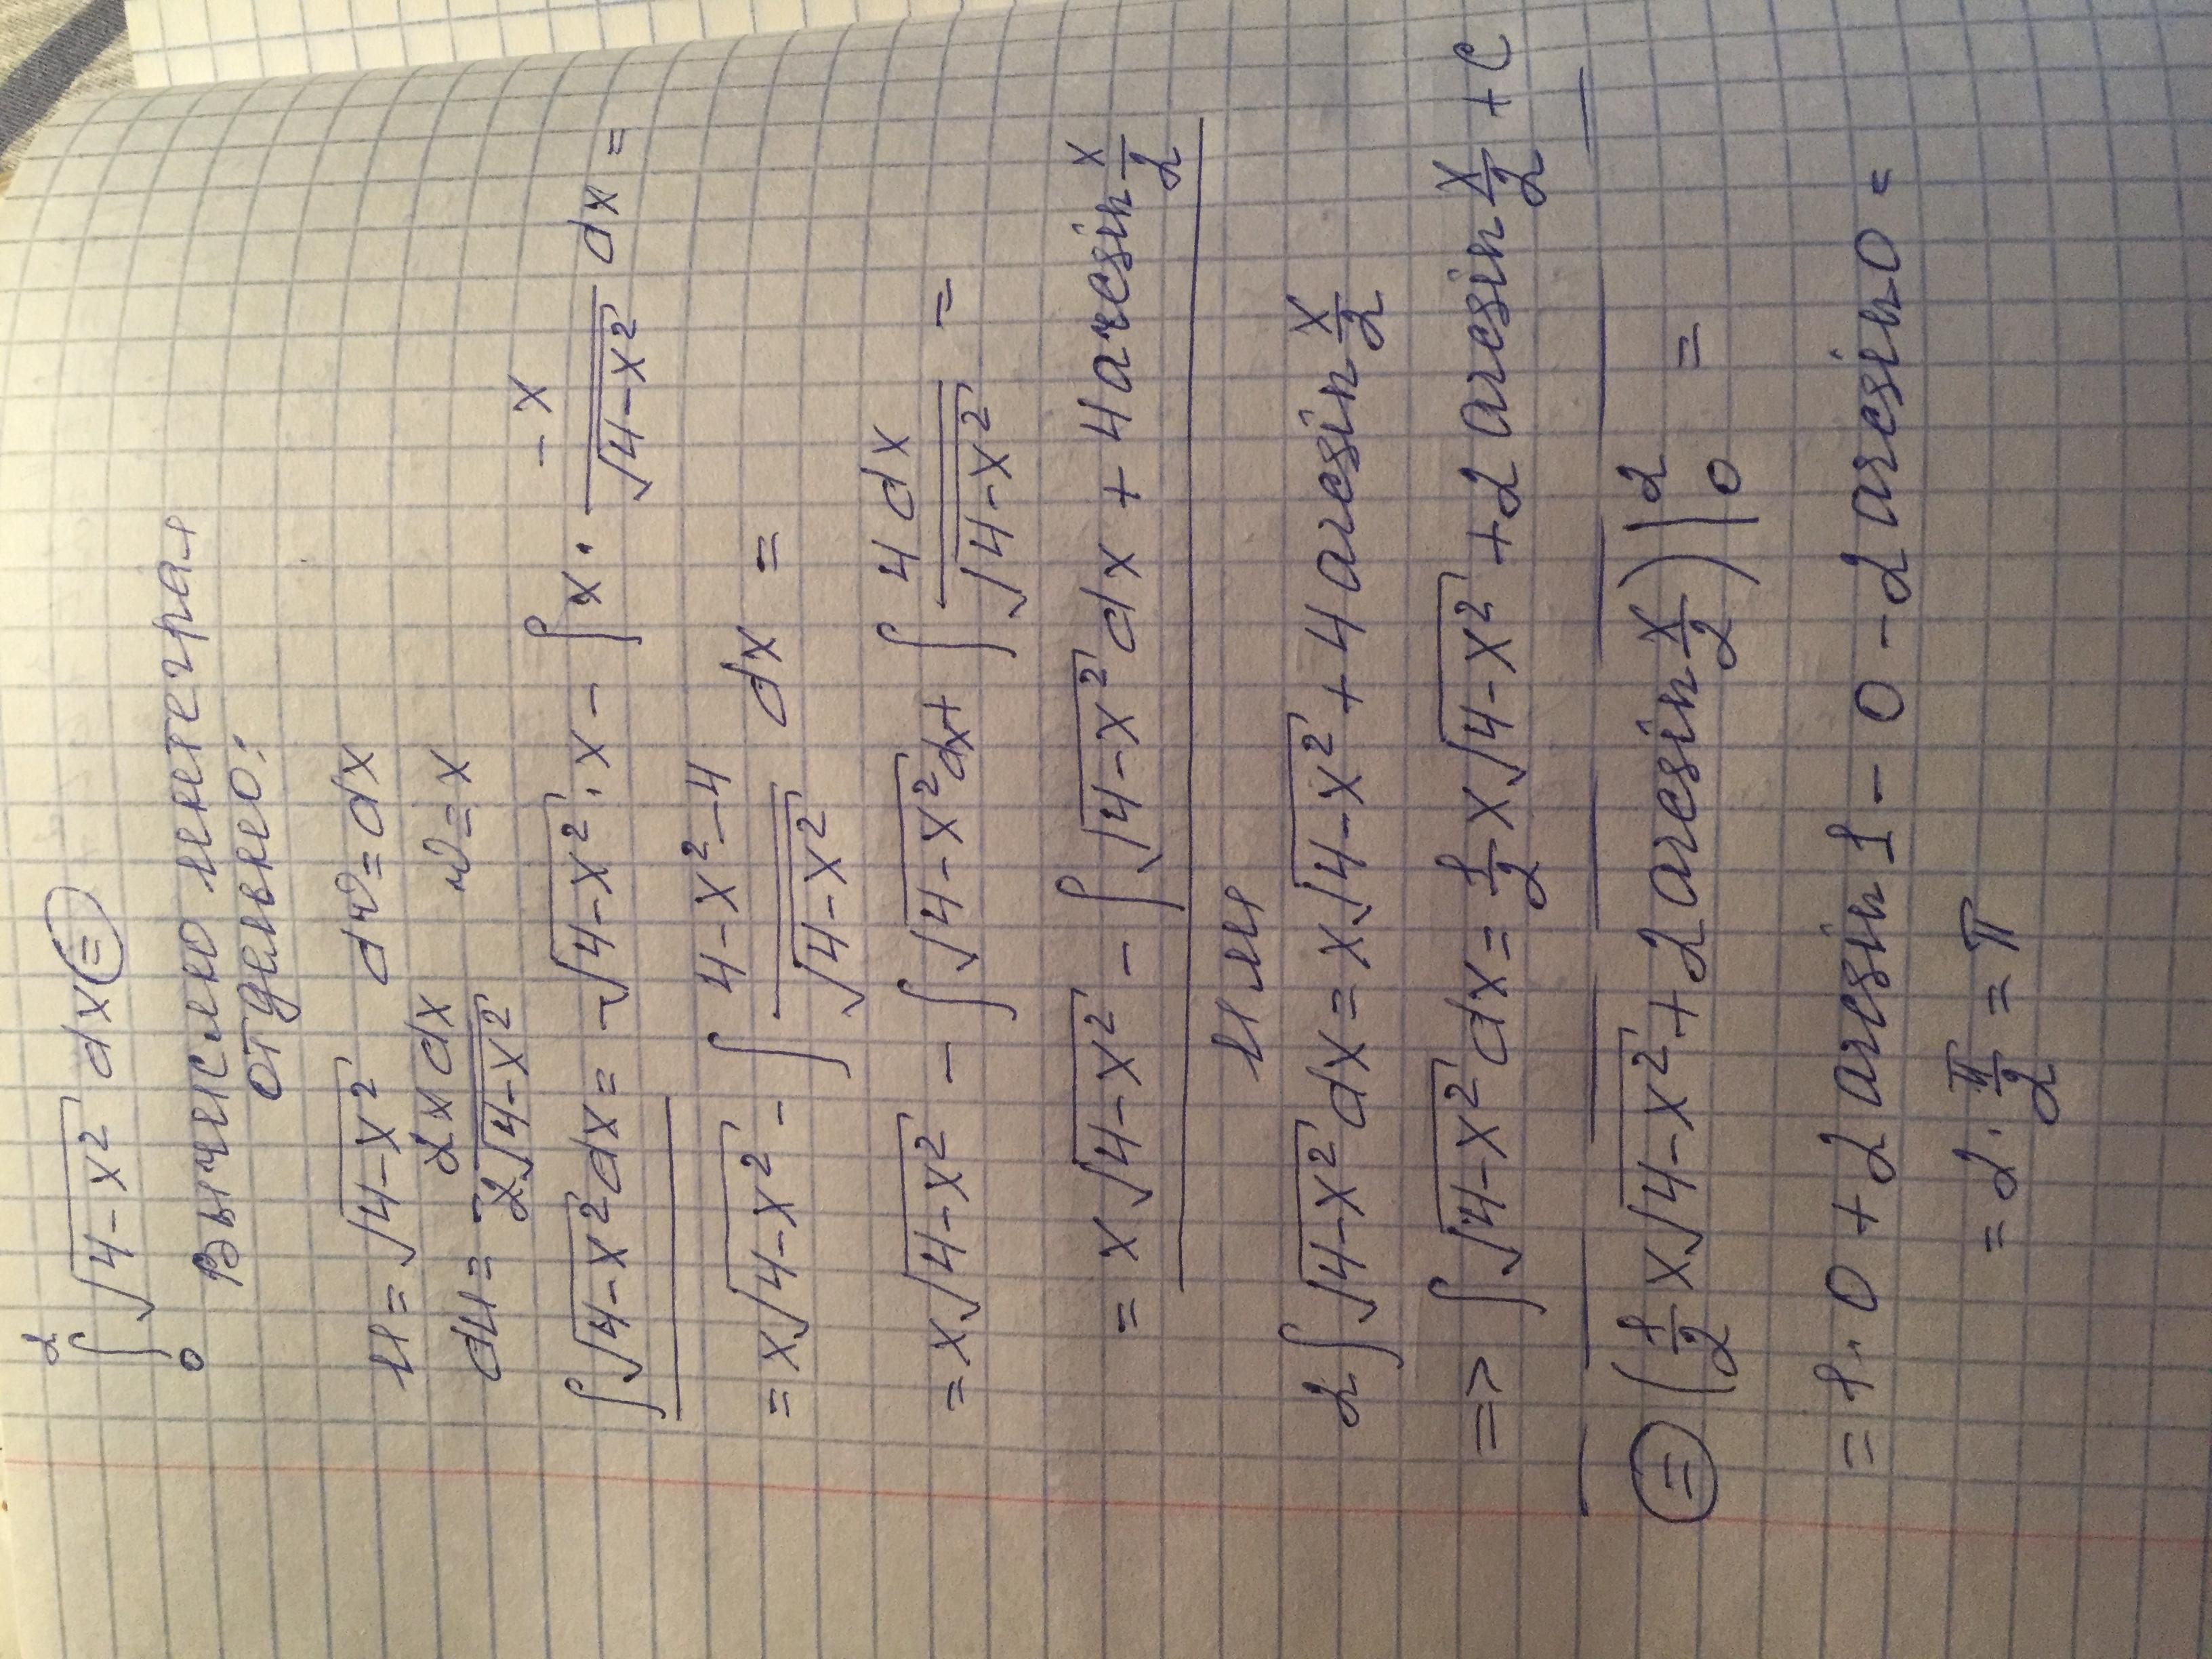 ∫₀² √(4-x²) dx (=)
Вычислю интеграл
отдельно:
u = √(4-x²)   dv = dx
du = -2xdx/(2√(4-x²))   v = x
∫√(4-x²) dx = √(4-x²) · x - ∫x · -x/√(4-x²) dx =
= x√(4-x²) - ∫ (4-x²-4)/√(4-x²) dx =
= x√(4-x²) - ∫√(4-x²) dx + ∫ 4dx/√(4-x²) =
= x√(4-x²) - ∫√(4-x²) dx + 4 arcsin x/2
или
2∫√(4-x²) dx = x√(4-x²) + 4 arcsin x/2
=> ∫√(4-x²) dx = 1/2 x√(4-x²) + 2 arcsin x/2 + C
(=) (1/2 x√(4-x²) + 2 arcsin x/2)|₀² =
= 1·0 + 2 arcsin 1 - 0 - 2 arcsin 0 =
= 2 · π/2 = π